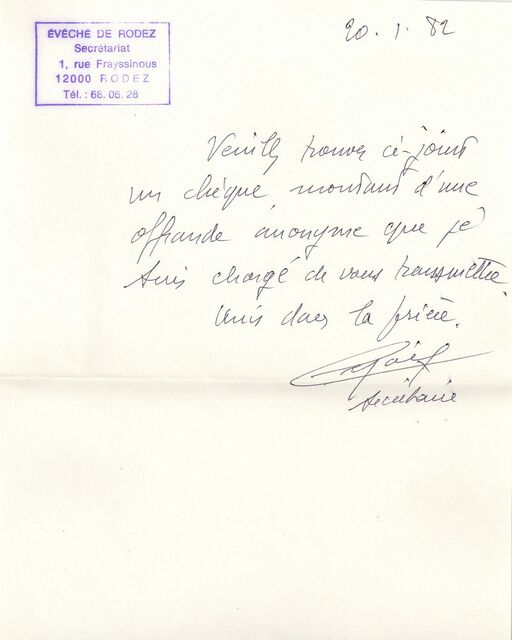 ÉVÊCHÉ DE RODEZ
Secrétariat
1, rue Frayssinous
12000 RODEZ
Tél. : 68.06.28
20.1.82
Veuillez trouver ci-joint
un chèque, montant d'une
offrande anonyme que je
suis chargé de vous transmettre.
Unis dans la prière.
secrétaire